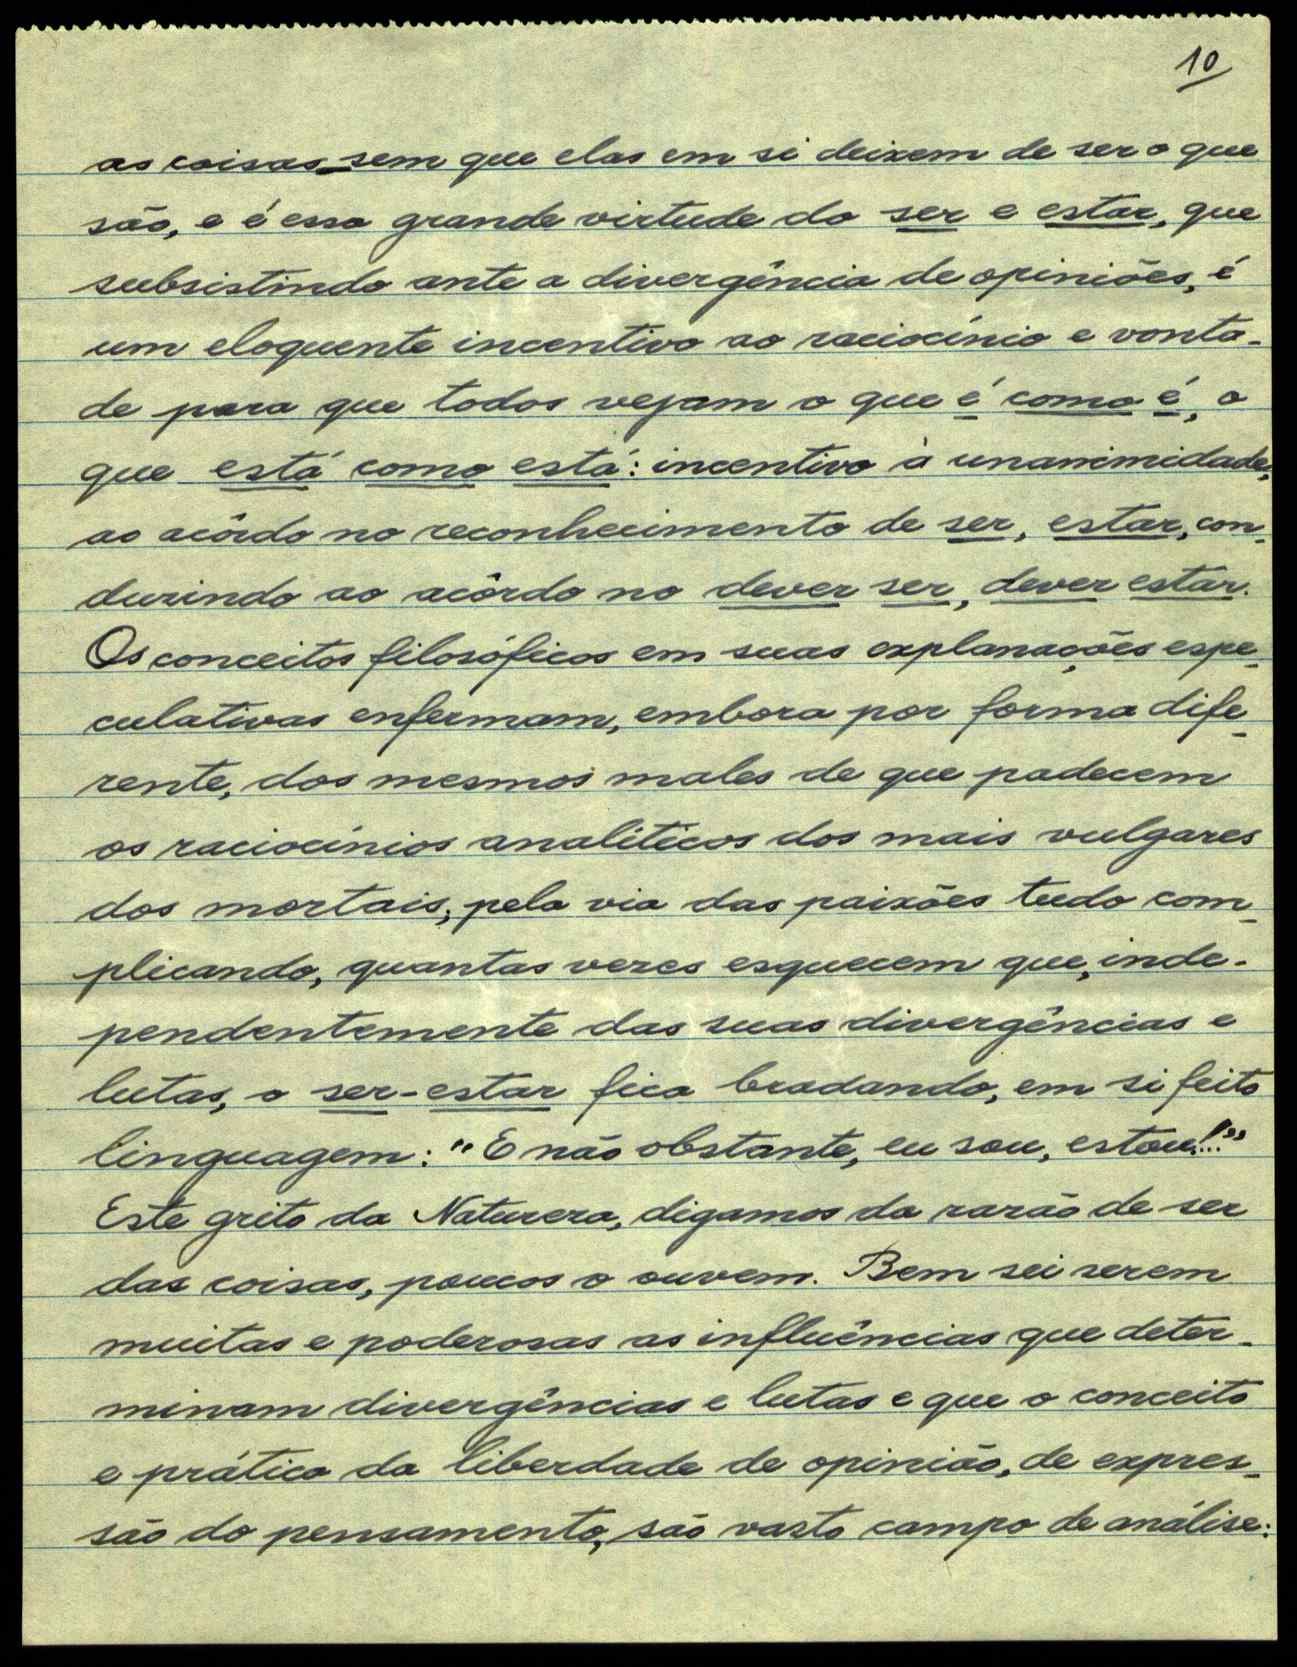 10
as coisas_sem que elas em si deixem de ser o que
são, e é essa grande virtude do ser e estar, que
subsistindo ante a divergência de opiniões, é
um eloquente incentivo ao raciocínio e vonta-
de para que todos vejam o que é como é, o
que está como está: incentivo à unanimidade,
ao acôrdo no reconhecimento de ser, estar, con-
duzindo ao acôrdo no dever ser, dever estar.
Os conceitos filosóficos em suas explanações espe-
culativas enfermam, embora por forma dife-
rente, dos mesmos males de que padecem
os raciocínios analíticos dos mais vulgares
dos mortais; pela via das paixões tudo com-
plicando, quantas vezes esquecem que, inde-
pendentemente das suas divergências e
lutas, o ser-estar fica bradando, em si feito
linguagem: "E não obstante, eu sou, estou!..."
Este grito da Natureza, digamos da razão de ser
das coisas, poucos o ouvem. Bem sei serem
muitas e poderosas as influências que deter-
minam divergências e lutas e que o conceito
e prática da liberdade de opinião, de expres-
são do pensamento, são vasto campo de análise: